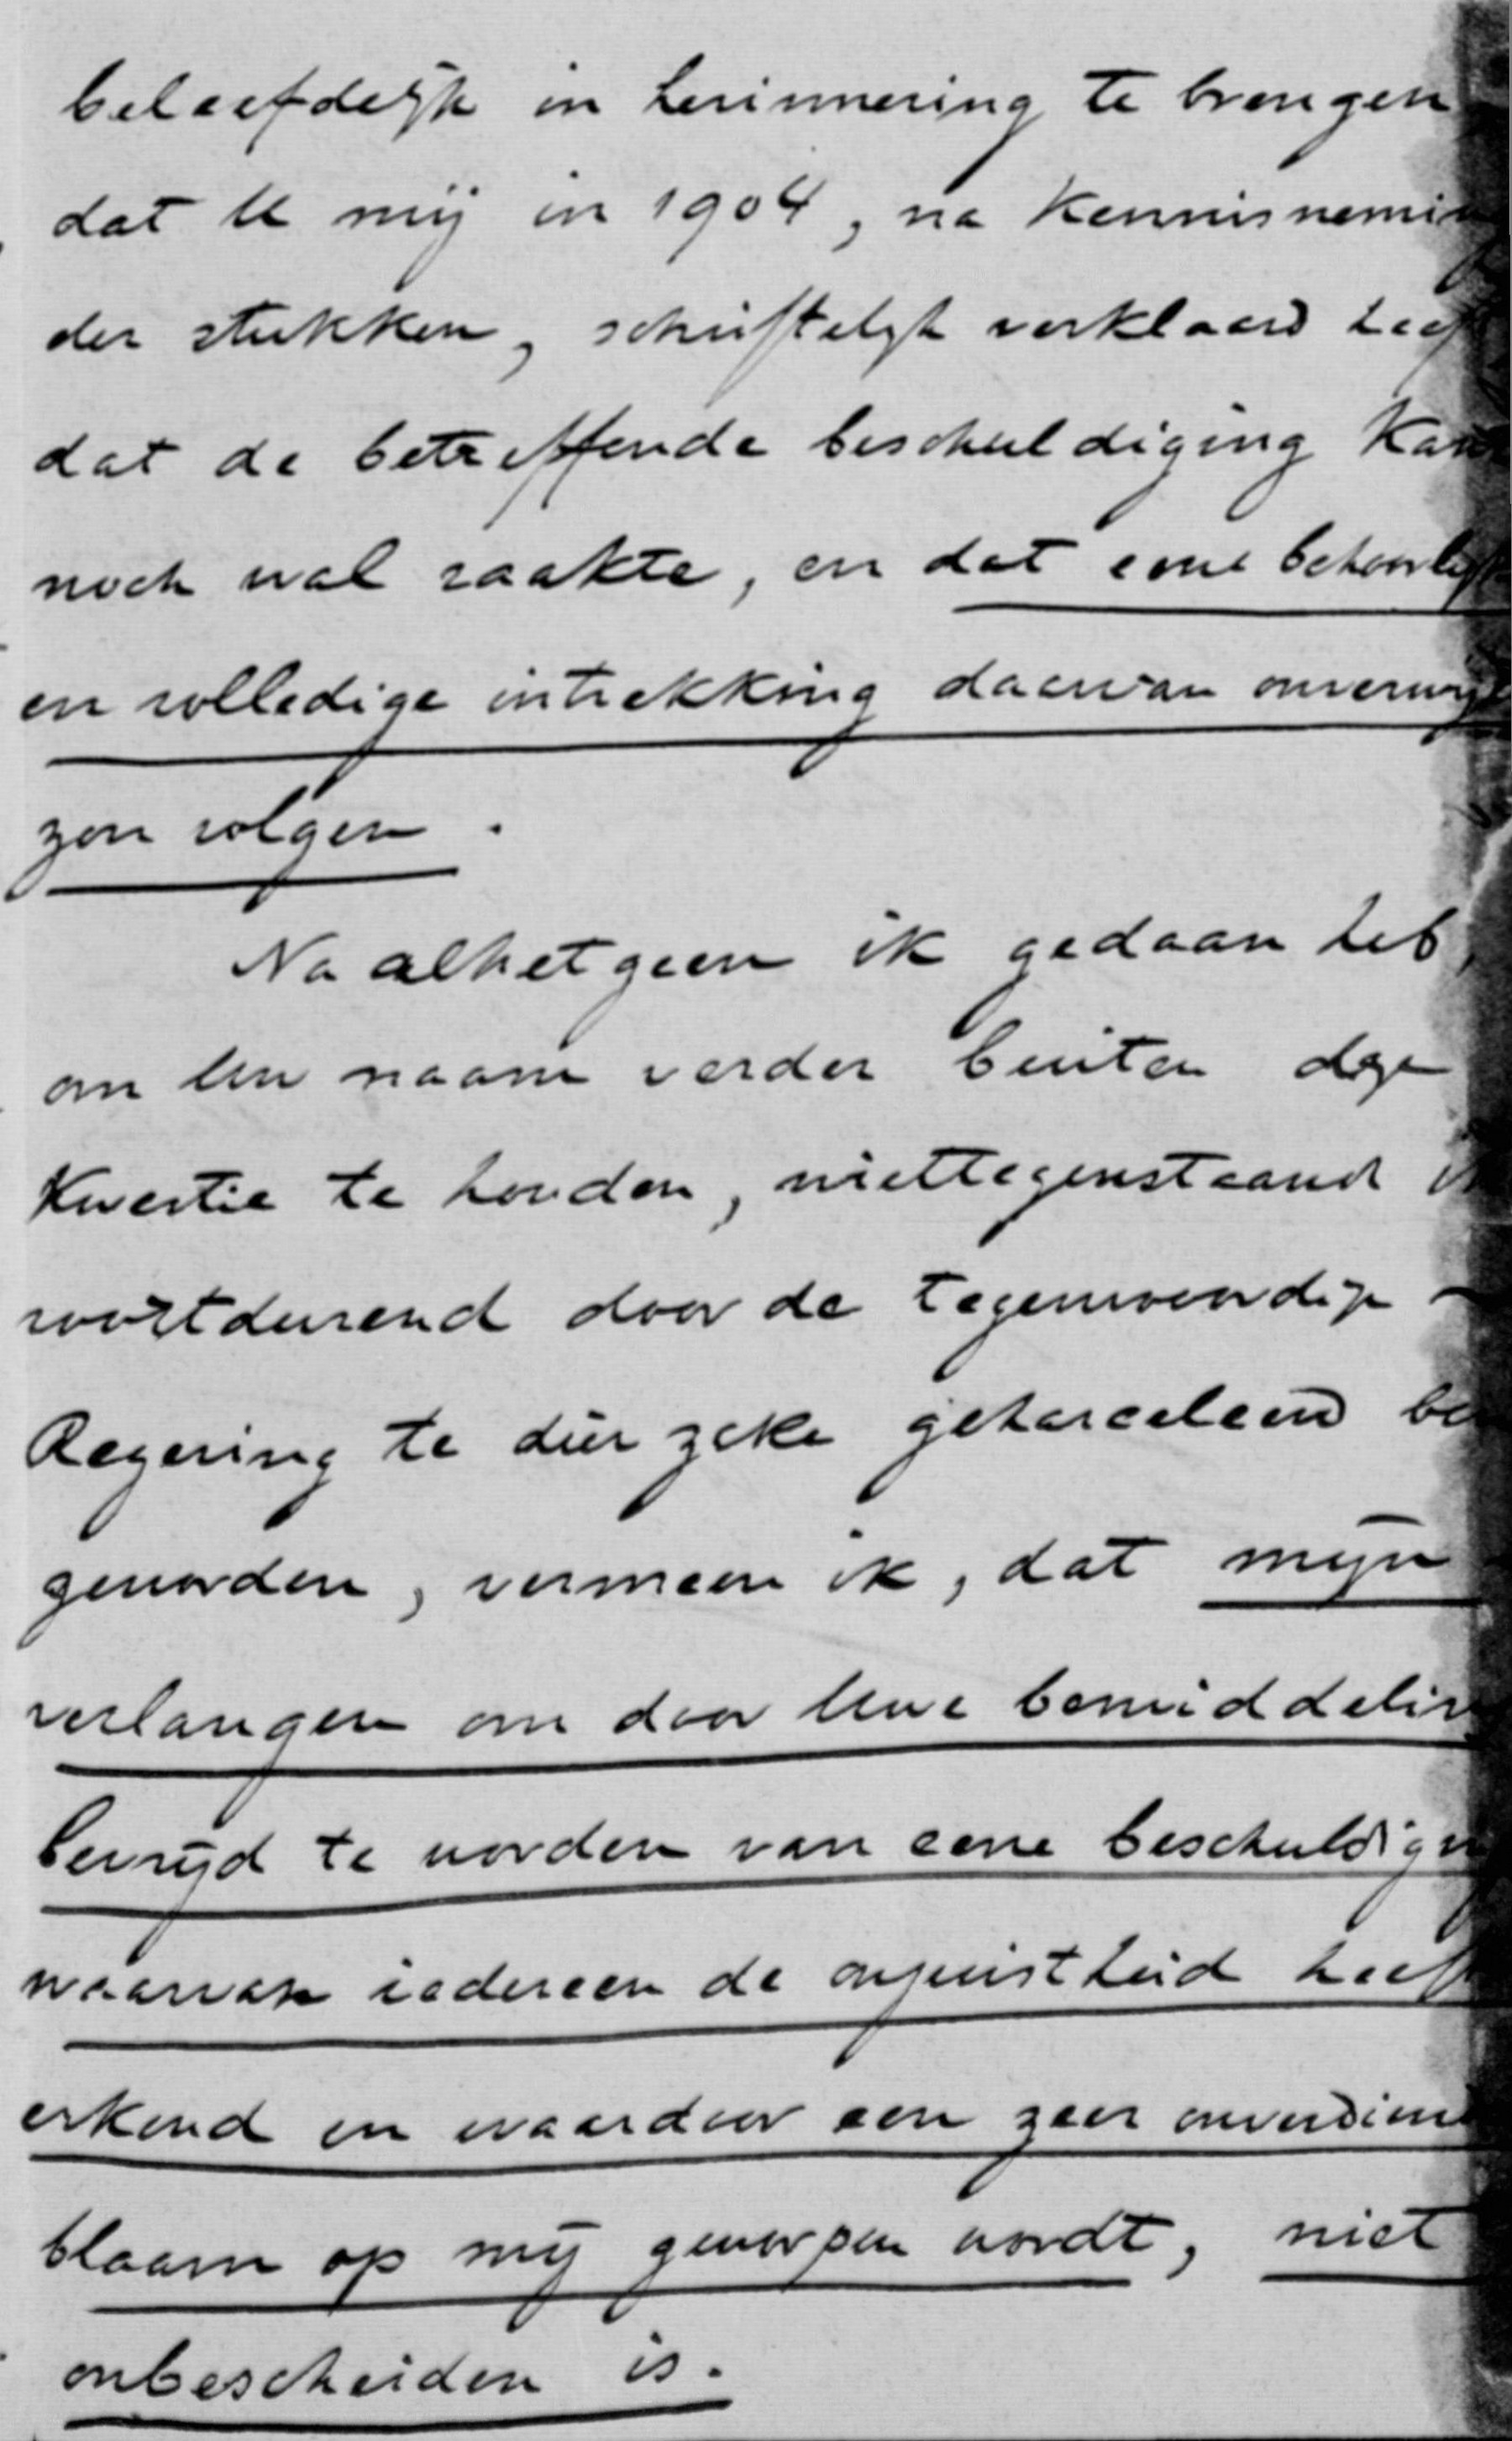 beleefdelijk in herinnering te brengen
dat U mij in 1904, na kennisnemin
der stukken, schriftelijk verklaard heef
dat de betreffende beschuldiging kan
noch wal raakte, en dat eene behoorlijk
en volledige intrekking daarvan onverwijl
zou volgen.
Na alhetgeen ik gedaan heb,
om Uw naam verder buiten deze
kwestie te houden, niettegenstaande ik
voortdurend door de tegenwoordige
Regering te dier zake geharceleerd be
geworden, vermeen ik, dat mijn
verlangen om door Uwe bemiddelin
bevrijd te worden van eene beschuldigin
waarvan iedereen de onjuistheid heef
erkend en waardoor een zeer onverdiend
blaam op mij geworpen wordt, niet
onbescheiden is.